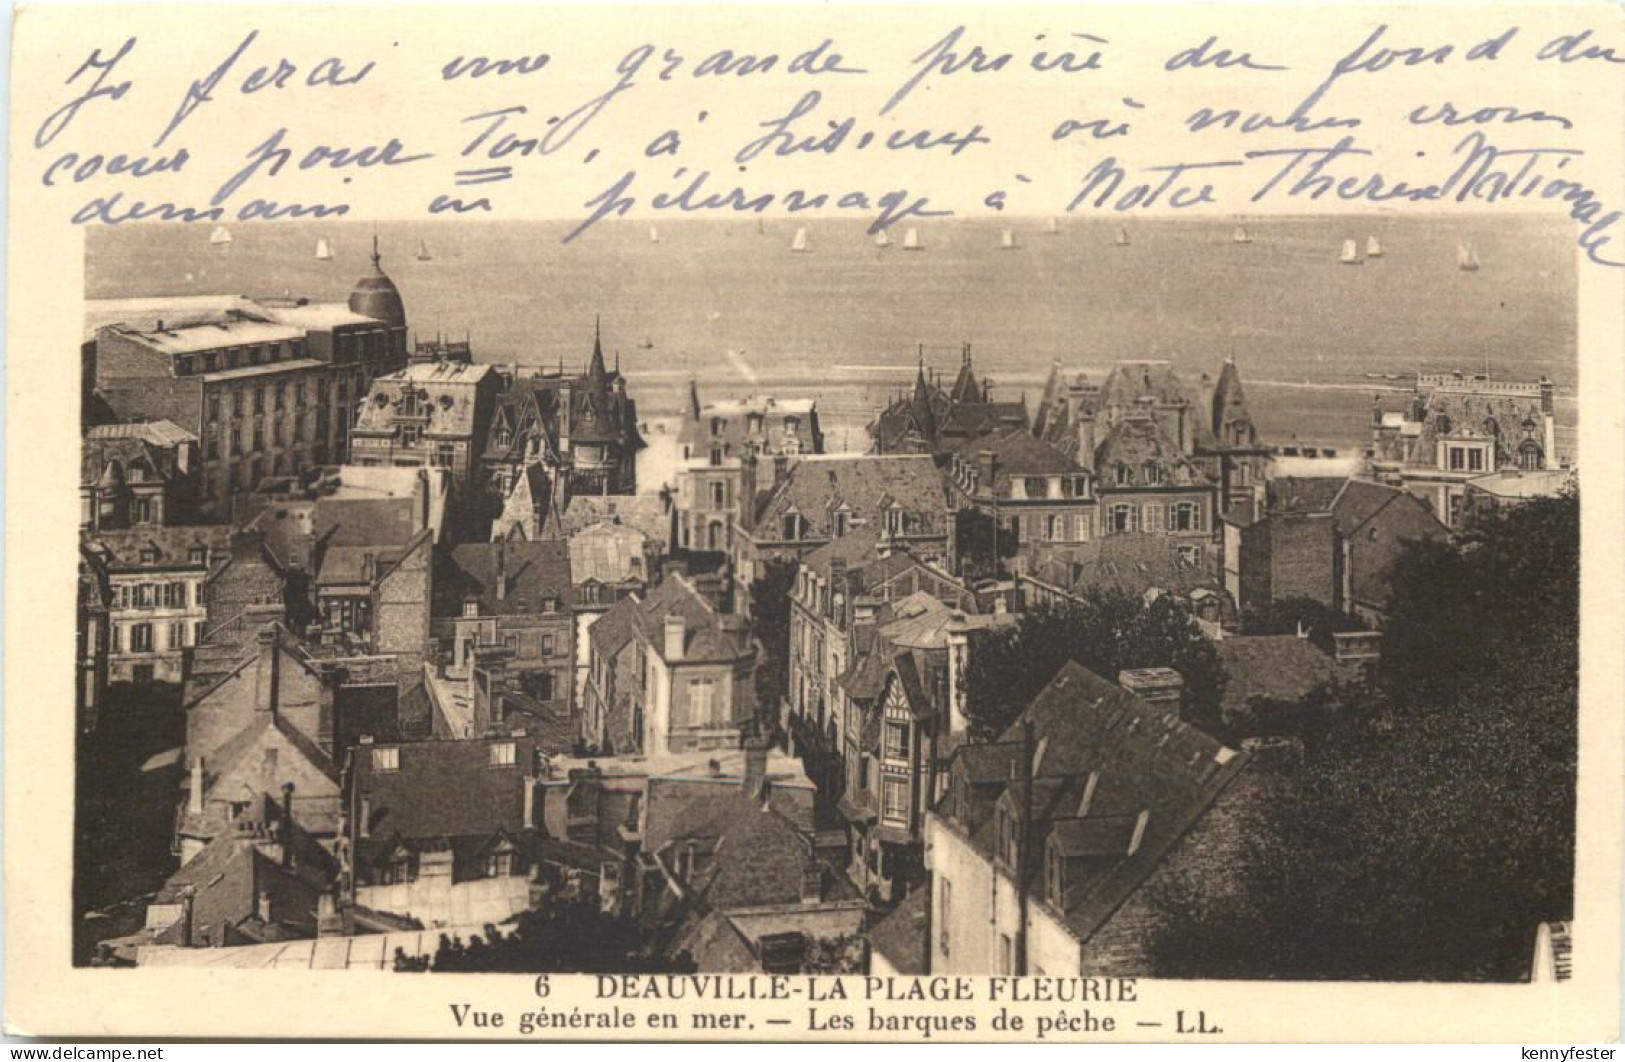 Je ferai une grande prière du fond du
coeur pour Toi, à Lisieux où nous irons
demain en pélerinage à Notre Nationale
6 DEAUVILLE-LA PLAGE FLEURIE
Vue générale en mer. — Les barques de pêche — LL.
delcampe.net
kennyfester